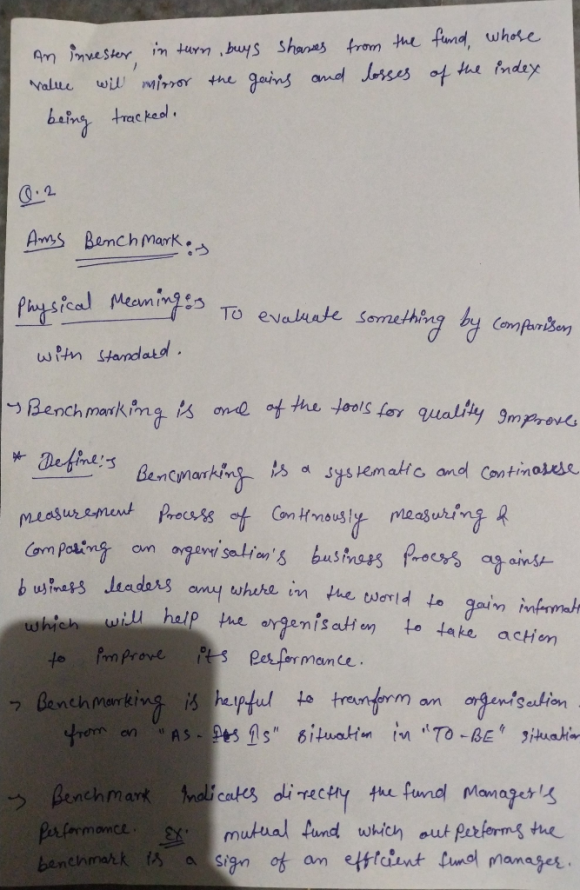 An invester, in turn, buys shares from the fund, whose
value will mirror the gains and losses of the index
being tracked.
Q.2
Ans Benchmark:→
Physical Meaning:→ To evaluate something by comparison
with standard.
→ Benchmarking is one of the tools for quality Improve
* Define:→ Bencmarking is a systematic and
measurement Process of Continously measuring &
Comparing an orgenisation's business Process against
business leaders any where in the world to gain informat
which will help the orgenisation to take action
to improve its Performance.
→ Benchmarking is helpful to transform an orgenisation
from an "AS-IS" situation in "TO-BE" situation
→ Benchmark Indicates directly the fund Manager's
Performance. Ex: mutual fund which outperforms the
benchmark is a sign of an efficient fund manager.